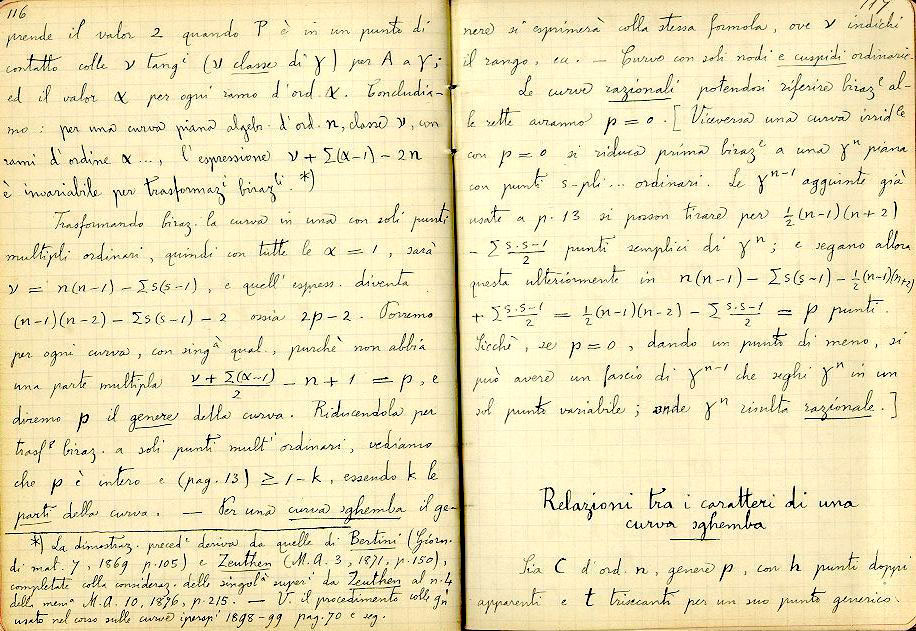 116
prende il valor 2 quando P è in un punto di
contatto colle ν tangⁱ (ν classe di γ) per A a γ;
ed il valor α per ogni ramo d'ord. α. Concludia-
mo: per una curva piana algebr. d'ord. n, classe ν, con
rami d'ordine α..., l'espressione ν + Σ(α-1) - 2n
è invariabile per trasformazⁱ birazˡⁱ. *)
Trasformando biraz. la curva in una con soli punti
multipli ordinari, quindi con tutte le α = 1, sarà
ν = n(n-1) - Σs(s-1), e quell'espress. diventa
(n-1)(n-2) - Σs(s-1) - 2 ossia 2p-2. Porremo
per ogni curva, con singᵃ qual., purchè non abbia
una parte multipla (ν+Σ(α-1))/2 - n + 1 = p, e
diremo p il genere della curva. Riducendola per
trasfᵉ biraz. a soli punti multⁱ ordinari, vediamo
che p è intero e (pag. 13) ≥ 1-k, essendo k le
parti della curva. — Per una curva sghemba il ge-
*) La dimostraz. precedᵉ deriva da quelle di Bertini (Giorn.
di mat. 7, 1869 p. 105) e Zeuthen (M.A. 3, 1871, p. 150),
completate colla consideraz. delle singolᵃ superⁱ da Zeuthen al n. 4
della memᵃ M.A. 10, 1876, p. 215. — V. il procedimento colle gⁱₙ
usato nel corso sulle curve iperspⁱ 1898-99 pag. 70 e seg.
117
nere si esprimerà colla stessa formola, ove ν indichi
il rango, ecc. — Curve con soli nodi e cuspidi ordinarie.
Le curve razionali potendosi riferire birazᵉ al-
le rette avranno p = 0. [Viceversa una curva irridˡᵉ
con p = 0 si riduca prima birazᵉ a una γⁿ piana
con punti s-pli... ordinari. Le γⁿ⁻¹ aggiunte già
usate a p. 13 si posson tirare per ½(n-1)(n+2)
- Σ s.s-1/2 punti semplici di γⁿ; e segano allora
questa ulteriormente in n(n-1) - Σs(s-1) - ½(n-1)(n+2)
+ Σ s.s-1/2 = ½(n-1)(n-2) - Σ s.s-1/2 = p punti.
Sicchè, se p = 0, dando un punto di meno, si
può avere un fascio di γⁿ⁻¹ che seghi γⁿ in un
sol punto variabile; onde γⁿ risulta razionale.]
Relazioni tra i caratteri di una
curva sghemba
Sia C d'ord. n, genere p, con h punti doppi
apparenti e t trisecanti per un suo punto generico.